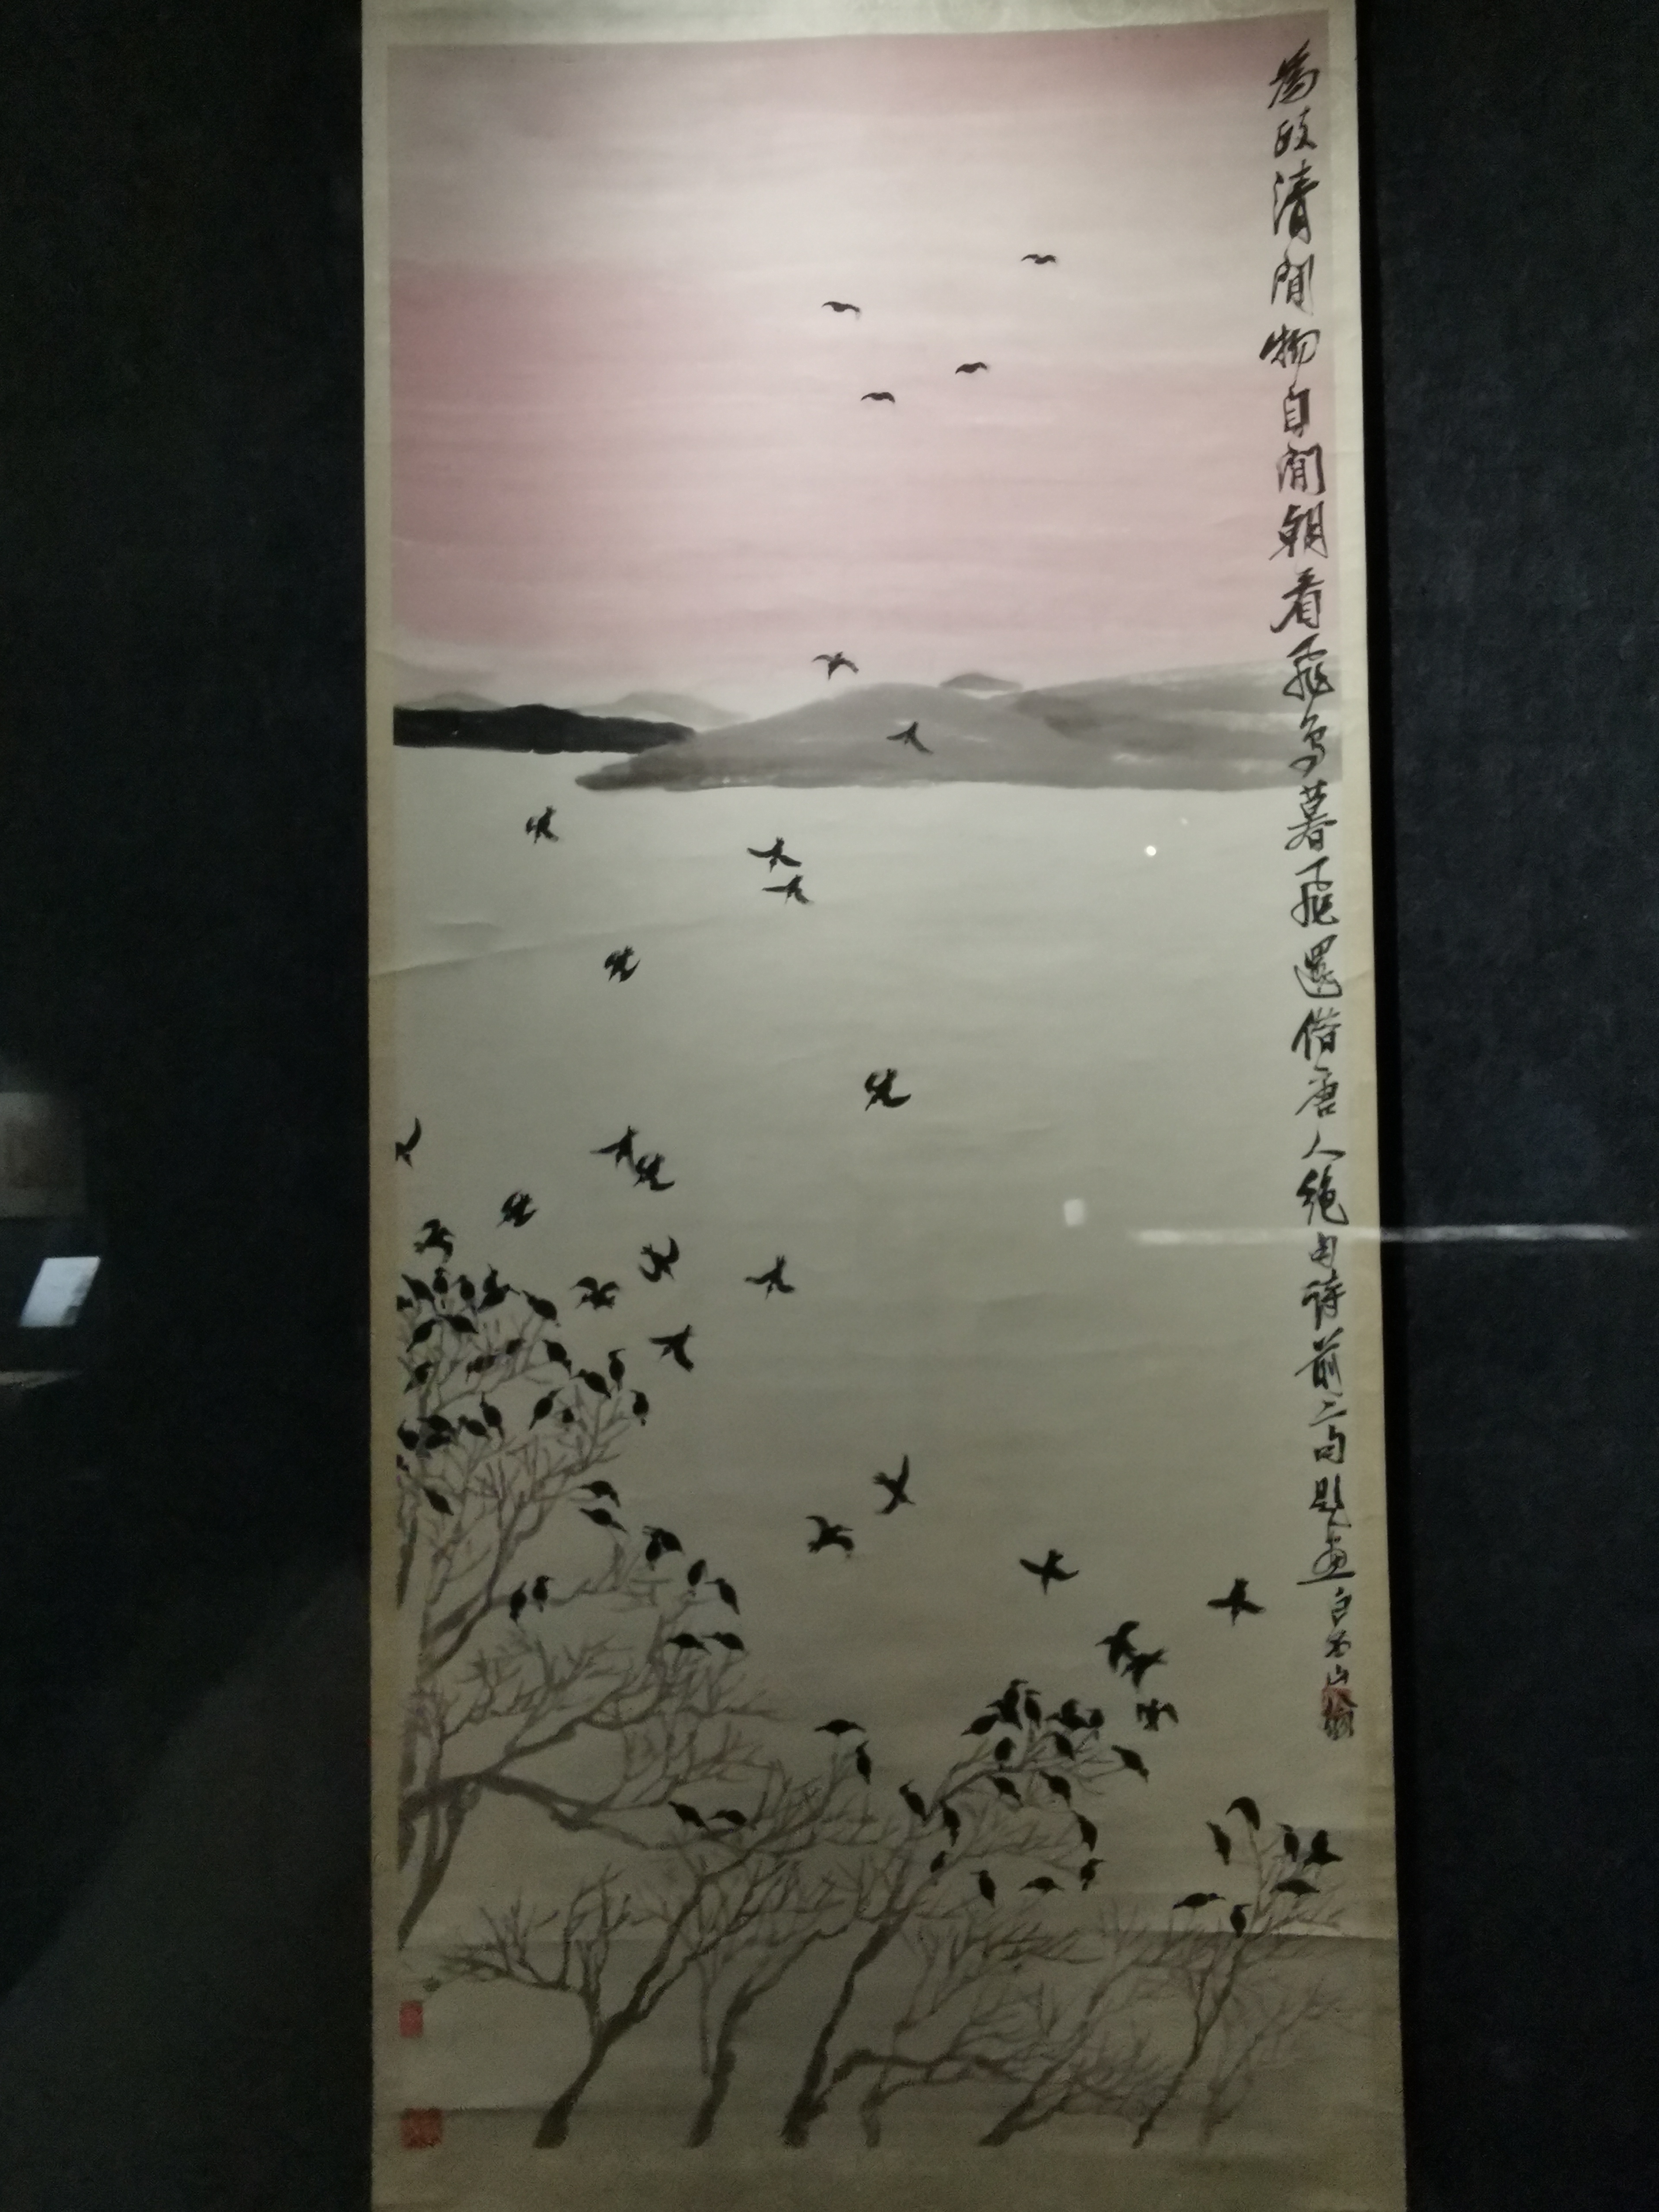 為政清閒物自閒朝看飛鳥暮飛還借唐人絕句詩前二句題畫白石山翁